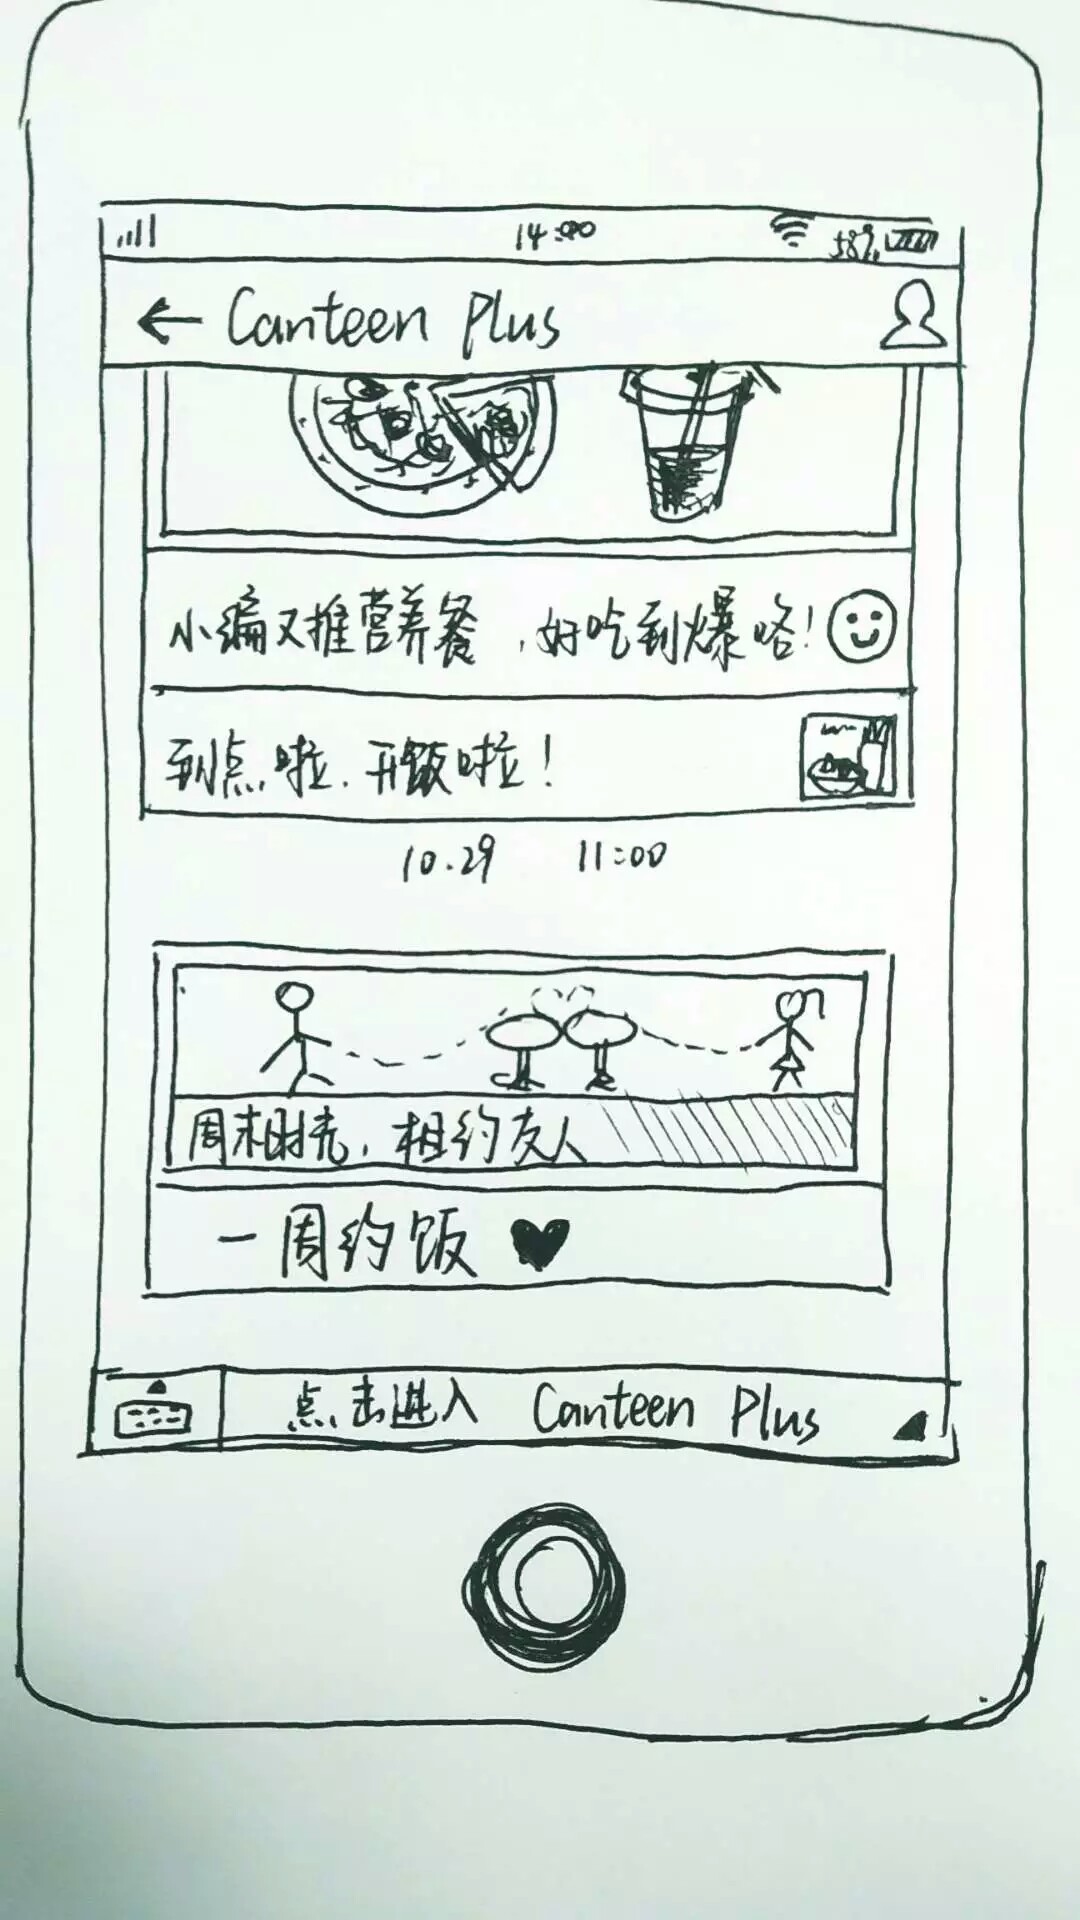 14:00 58%
Canteen Plus
小编又推营养餐，好吃到爆咯！
到点啦，开饭啦！
10.29 11:00
周末时光，相约友人
一周约饭
点击进入 Canteen Plus